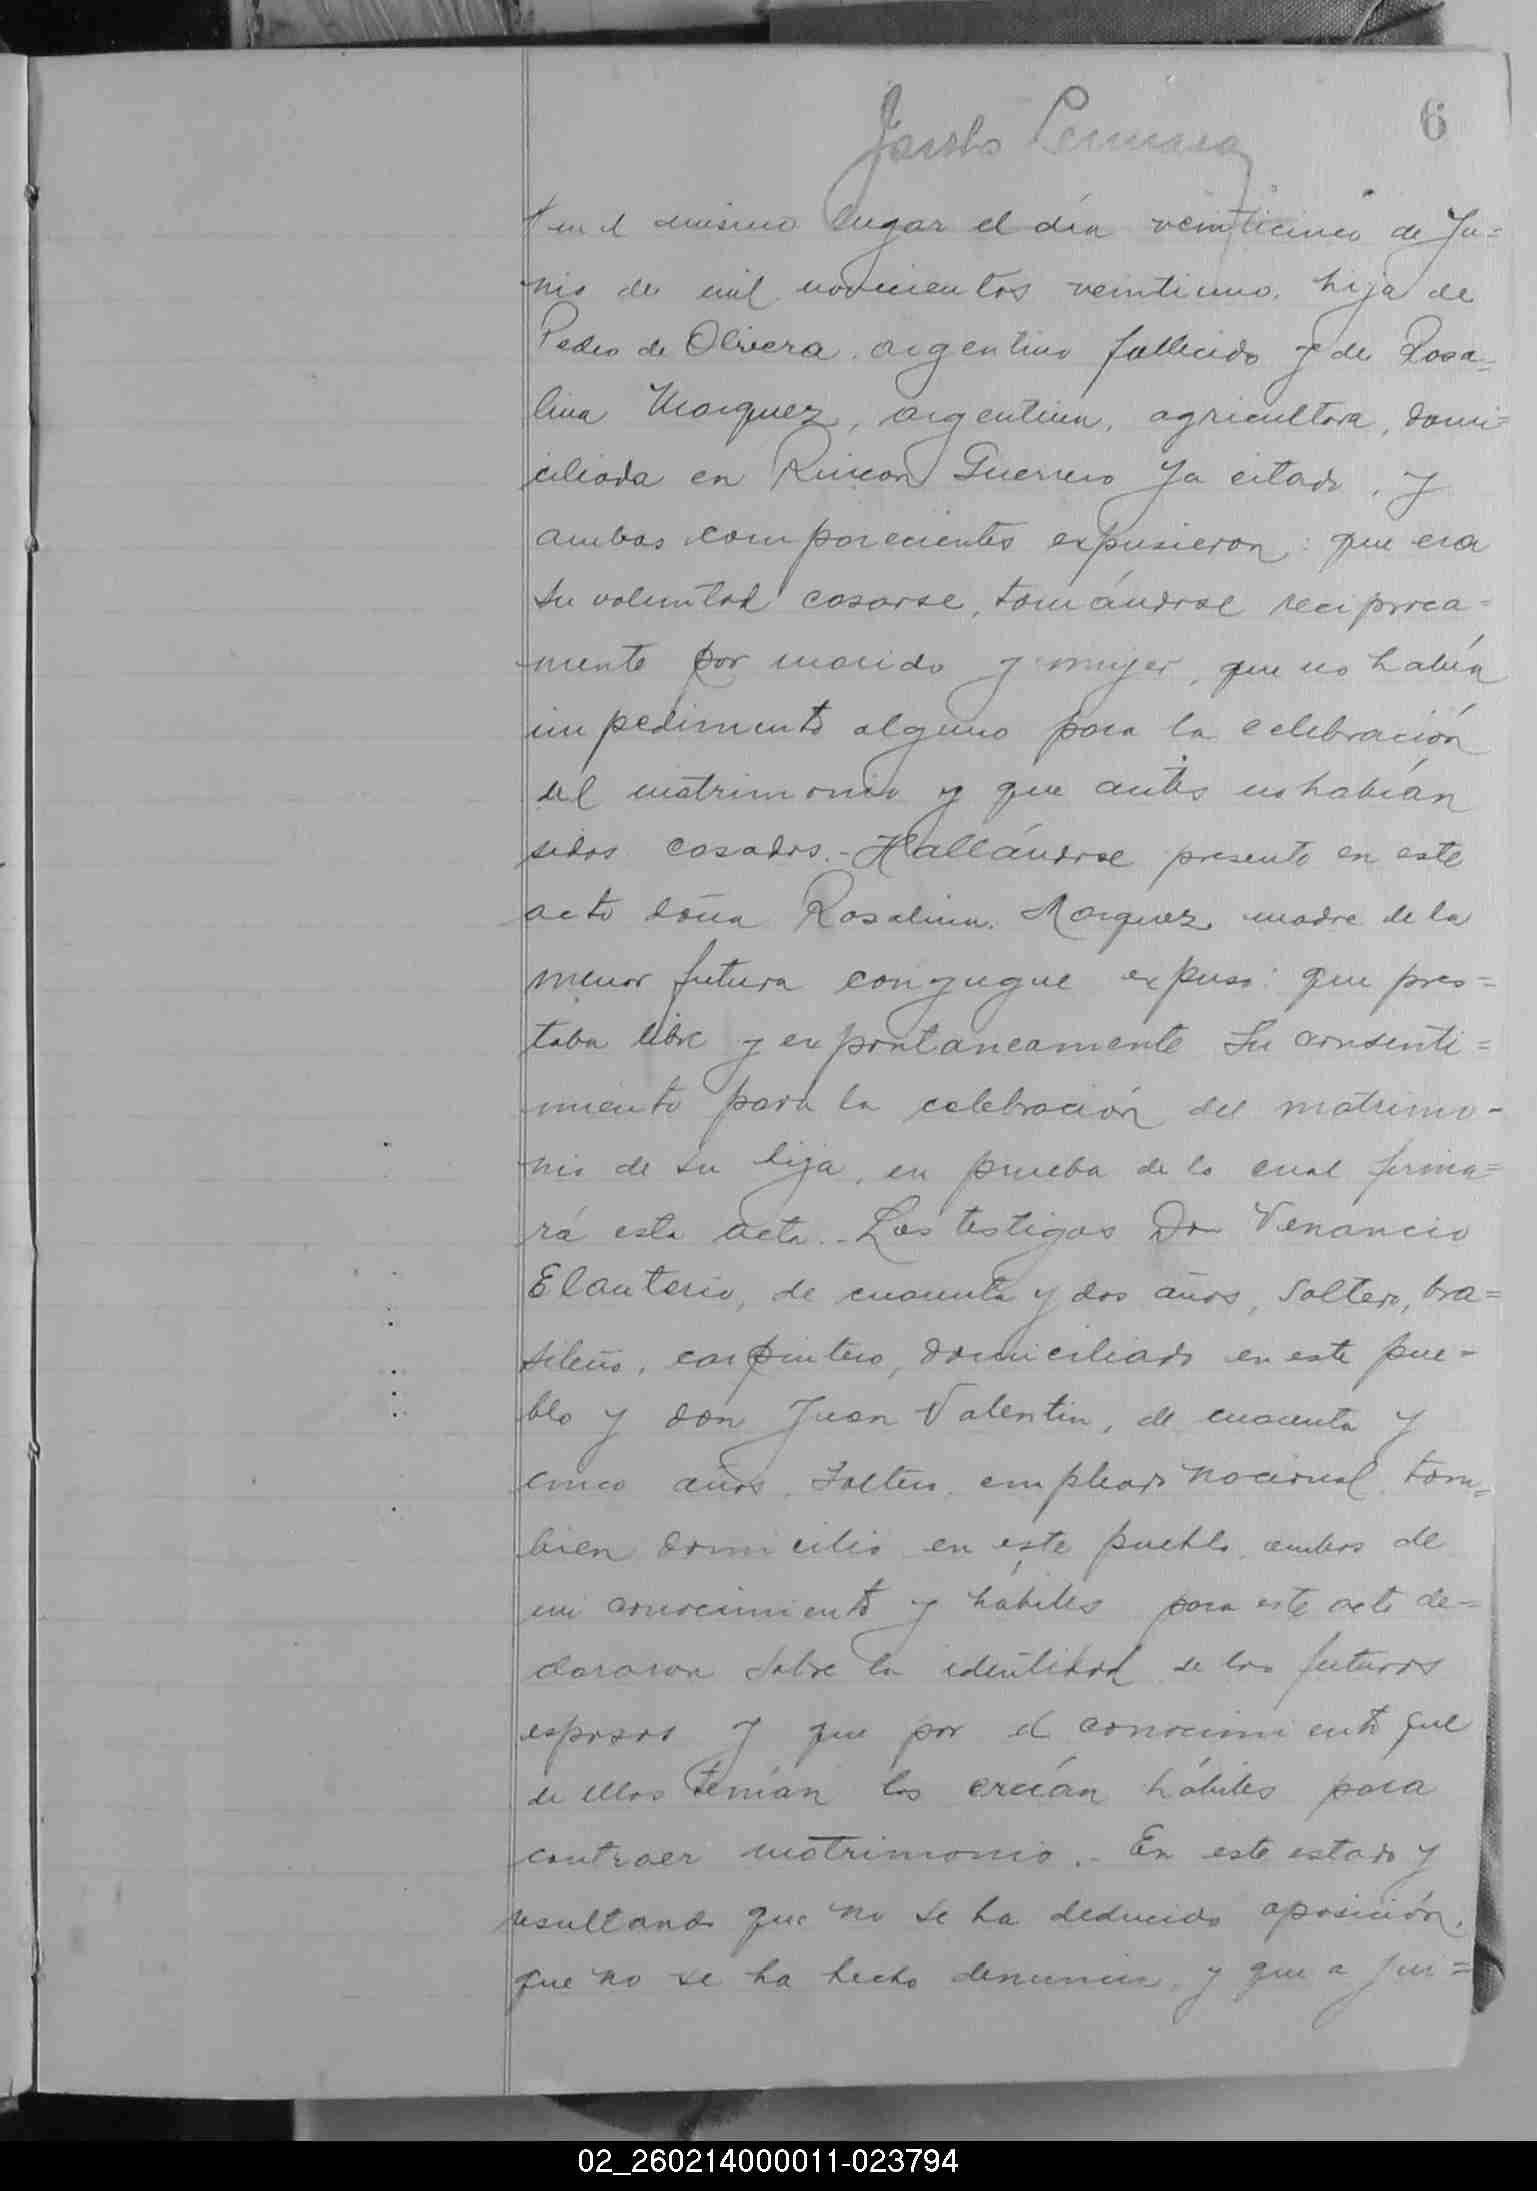 6
Jacobo
en el mismo lugar el día veinticinco de Ju=
nio de mil novecientos veintiuno, hija de
Pedro de Olivera, argentino fallecido y de Rosa=
lina Marquez, argentina, agricultora, domi=
ciliada en Rincon Guerrero ya citado, y
ambos comparecientes expusieron: que era
su voluntad casarse, tomándose reciproca=
mente por marido y mujer, que no había
impedimento alguno para la celebración
del matrimonio y que antes no habían
sidos casados.- Hallándose presente en este
acto doña Rosalina Marquez, madre de la
menor futura conyugue expuso: que pres=
taba libre y expontaneamente su consenti=
miento para la celebración del matrimo-
nio de su hija, en prueba de lo cual firma=
rá esta acta.- Los testigos Don Venancio
Elauterio, de cuarenta y dos años, soltero, bra=
sileño, carpintero, domiciliado en este pue=
blo y don Juan Valentin, de cuarenta y
cinco años, soltero, empleado nacional, tam=
bien domicilio en este pueblo, ambos de
mi conocimiento y hábiles para este acto de=
clararon sobre la identidad de los futuros
esposos y que por el conocimiento que
de ellos tenían los creían hábiles para
contraer matrimonio.- En este estado y
resultando que no se ha deducido oposición,
que no se ha hecho denuncia, y que a jui=
02_260214000011-023794